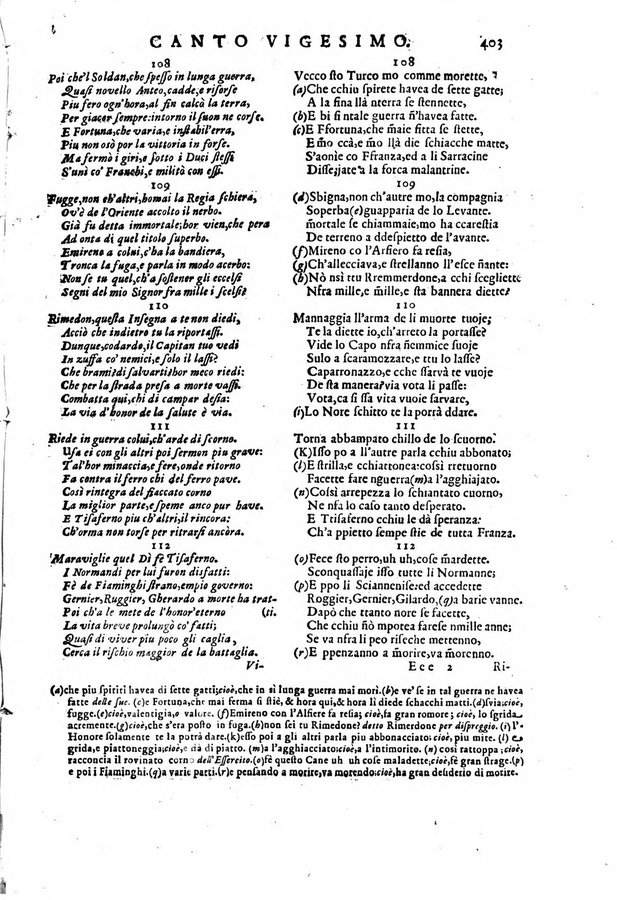 CANTO VIGESIMO. 403
108
Poi che'l Soldan, che spesso in lunga guerra,
Quasi novello Anteo, cadde, e risorse
Piu fero ogn'hora, al fin calcò la terra,
Per giacer sempre: intorno il suon ne corse.
E Fortuna, che varia, e instabil'erra,
Piu non osò por la vittoria in forse.
Ma fermò i giri, e sotto i Duci stessi
S'unì co' Franchi, e militò con essi.
109
Fugge, non ch'altri, homai la Regia schiera,
Ov'è de l'Oriente accolto il nerbo.
Già fu detta immortale: hor vien, che pera
Ad onta di quel titolo superbo.
Emireno a colui, c'ha la bandiera,
Tronca la fuga, e parla in modo acerbo:
Non se tu quel, ch'a sostener gli eccelsi
Segni del mio Signor fra mille i scelsi?
110
Rimedon, questa Insegna a te non diedi,
Acciò che indietro tu la riportassi.
Dunque, codardo, il Capitan tuo vedi
In zuffa co' nemici, e solo il lassi?
Che brami? di salvarti? hor meco riedi:
Che per la strada presa a morte vassi.
Combatta quì, chi di campar desia:
La via d'honor de la salute è via.
111
Riede in guerra colui, ch'arde di scorno.
Usa ei con gli altri poi sermon più grave:
Tal'hor minaccia, e fere, onde ritorno
Fa contra il ferro chi del ferro pave.
Così rintegra del fiaccato corno
La miglior parte, e speme anco pur have.
E Tisaferno piu ch'altri, il rincora:
Ch'orma non torse per ritrarsi ancòra.
112
Maraviglie quel Dì fè Tisaferno.
I Normandi per lui furon disfatti:
Fè de Fiaminghi strano, empio governo:
Gernier, Ruggier, Gherardo a morte ha trat-
Poi ch'a le mete de l'honor'eterno (ti.
La vita breve prolungò co' fatti;
Quasi di viver piu poco gli caglia,
Cerca il rischio maggior de la battaglia.
Vi-
108
Vecco sto Turco mo comme morette,
(a)Che chiu spirete havea de sette gatte;
A la fina llà nterra se stennette,
(b)E bi si ntale guerra n'havea fatte.
(c)E Ffortuna, che m̃aie fitta se stette,
Em̃o ccà, e m̃o llà die schiacche matte,
S'aonìe co Ffranza, ed a li Sarracine
Dissejjate la forca malantrine.
109
(d)Sbigna, non ch'autre mo, la compagnia
Soperba(e)guapparia de lo Levante.
m̃ortale se chiammaie, mo ha ccarestia
De terreno a ddespietto de l'avante.
(f)Mireno co l'Arfiero fa resia,
(g)Ch'allecciava, e strellanno ll'esce ñante:
(h)Nò nsì tu Rremmerdone, a cchi scegliette
Nfra mille, e m̃ille, e sta bannera diette?
110
Mannaggia ll'arma de li muorte tuoje;
Te la diette io, ch'arreto la portasse?
Vide lo Capo nfra ñemmice suoje
Sulo a scaramozzare, e ttu lo lasse?
Caparronazzo, e cche ssarvà te vuoje
De sta manera? via vota li passe:
Vota, ca si ssa vita vuoie sarvare,
(i)Lo Nore schitto te la porrà ddare.
111
Torna abbampato chillo de lo scuorno.
(K)Isso po a ll'autre parla cchiu abbonato;
(l)E strilla, e cchiattonea: così rretuorno
Facette fare nguerra(m)a l'agghiajato.
(n)Cossì arrepezza lo schiantato cuorno,
Ne nfa lo caso tanto desperato.
E Ttisaferno cchiu le dà speranza:
Ch'a ppietto sempe stie de tutta Franza.
112
(o)Fece sto perro, uh uh, cose m̃ardette.
Sconquassaje isso tutte li Normanne;
(p)E ppo li Sciannenise, ed accedette
Roggier, Gernier, Gilardo, (q)a barie vanne.
Dapò che ttanto nore se facette,
Che cchiu ñiò mpotea farese nmille anne;
Se va nfra li peo riseche mettenno,
(r)E ppenzanno a m̃orire, va m̃orenno.
Eee 2 Ri-
(a)che piu spiriti havea di sette gatti; cioè, che in sì lunga guerra mai morì. (b)e ve' se in tale guerra ne havea
fatte delle sue. (c)e Fortuna, che mai ferma si stiè, & hora quì, & hora lì diede schacchi matti. (d)svia; cioè,
fugge. (e)cioè, valentigia, o valore. (f)Emireno con l'Alfiere fa resia; cioè, fa gran romore; cioè, lo sgrida
acremente. (g)cioè, che s'era posto in fuga. (h)non sei tu Rimedone? detto Rimerdone per dispreggio. (i)l'-
Honore solamente te la potrà dare. (k)esso poi a gli altri parla piu abbonacciato: cioè, piu mite. (l) e
grida, e piattoneggia; cioè, e dà di piatto. (m)a l'agghiacciato; cioè, a l'intimorito. (n) così rattoppa; cioè,
racconcia il rovinato corno dell'Essercito. (o)fè questo Cane uh uh cose maladette; cioè, fè gran strage. (p)
e poi i Fiaminghi. (q)a varie parti. (r)e pensando a morire, va morendo: cioè, ha gran desiderio di morire.